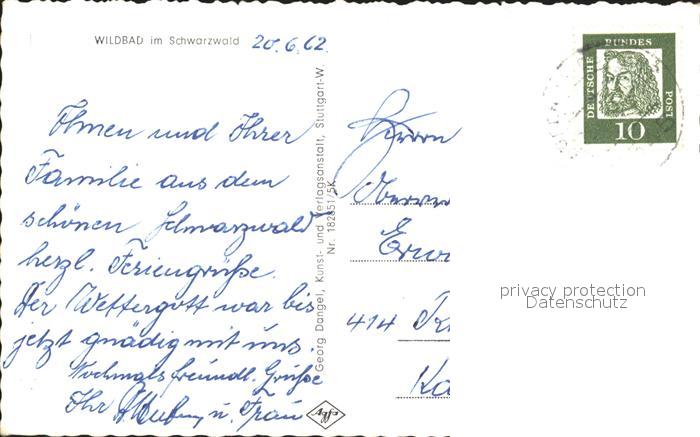 WILDBAD im Schwarzwald 20.6.62.
Ihnen und Ihrer
Familie aus dem
schönen Schwarzwald
herzl. Feriengrüße.
Der Wettergott war bis
jetzt gnädig mit uns.
Nochmals freundl. Grüße
Ihr u. Frau
Georg Dangel, Kunst- und Verlagsanstalt, Stuttgart-W.
Nr. 182851/5K
Agfa
Herrn
414
DEUTSCHE
BUNDES
POST
10
privacy protection
Datenschutz